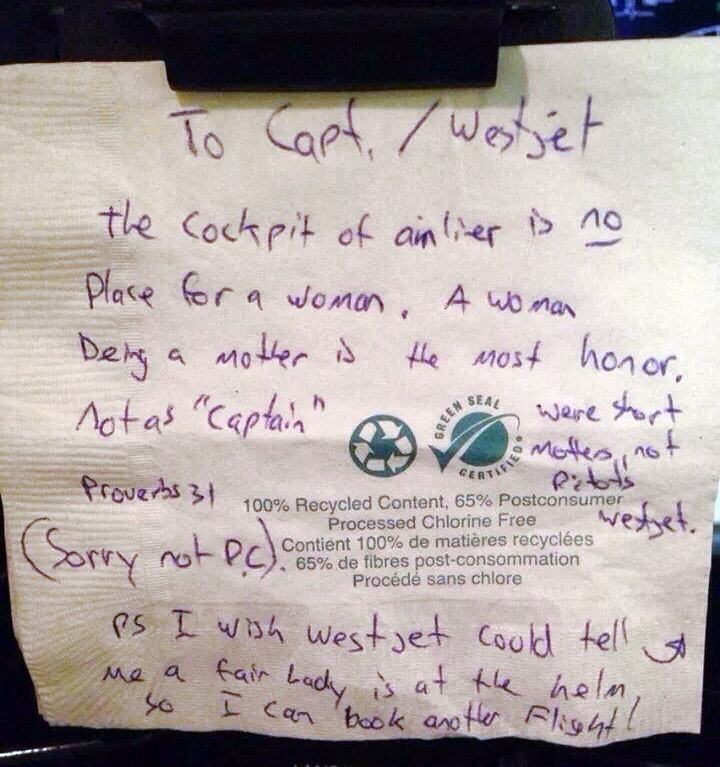 To Capt. / Westjet
the cockpit of airlier is no
Place for a woman. A woman
being a mother is the most honor.
Not as "captain"
were short
mothers, not
pilots
westjet.
GREEN SEAL
CERTIFIED
Proverbs 31
100% Recycled Content, 65% Postconsumer
Processed Chlorine Free
(Sorry not P.C).
Contient 100% de matières recyclées
65% de fibres post-consommation
Procédé sans chlore
PS I wish westjet could tell
me a fair lady is at the helm
so I can book another Flight!